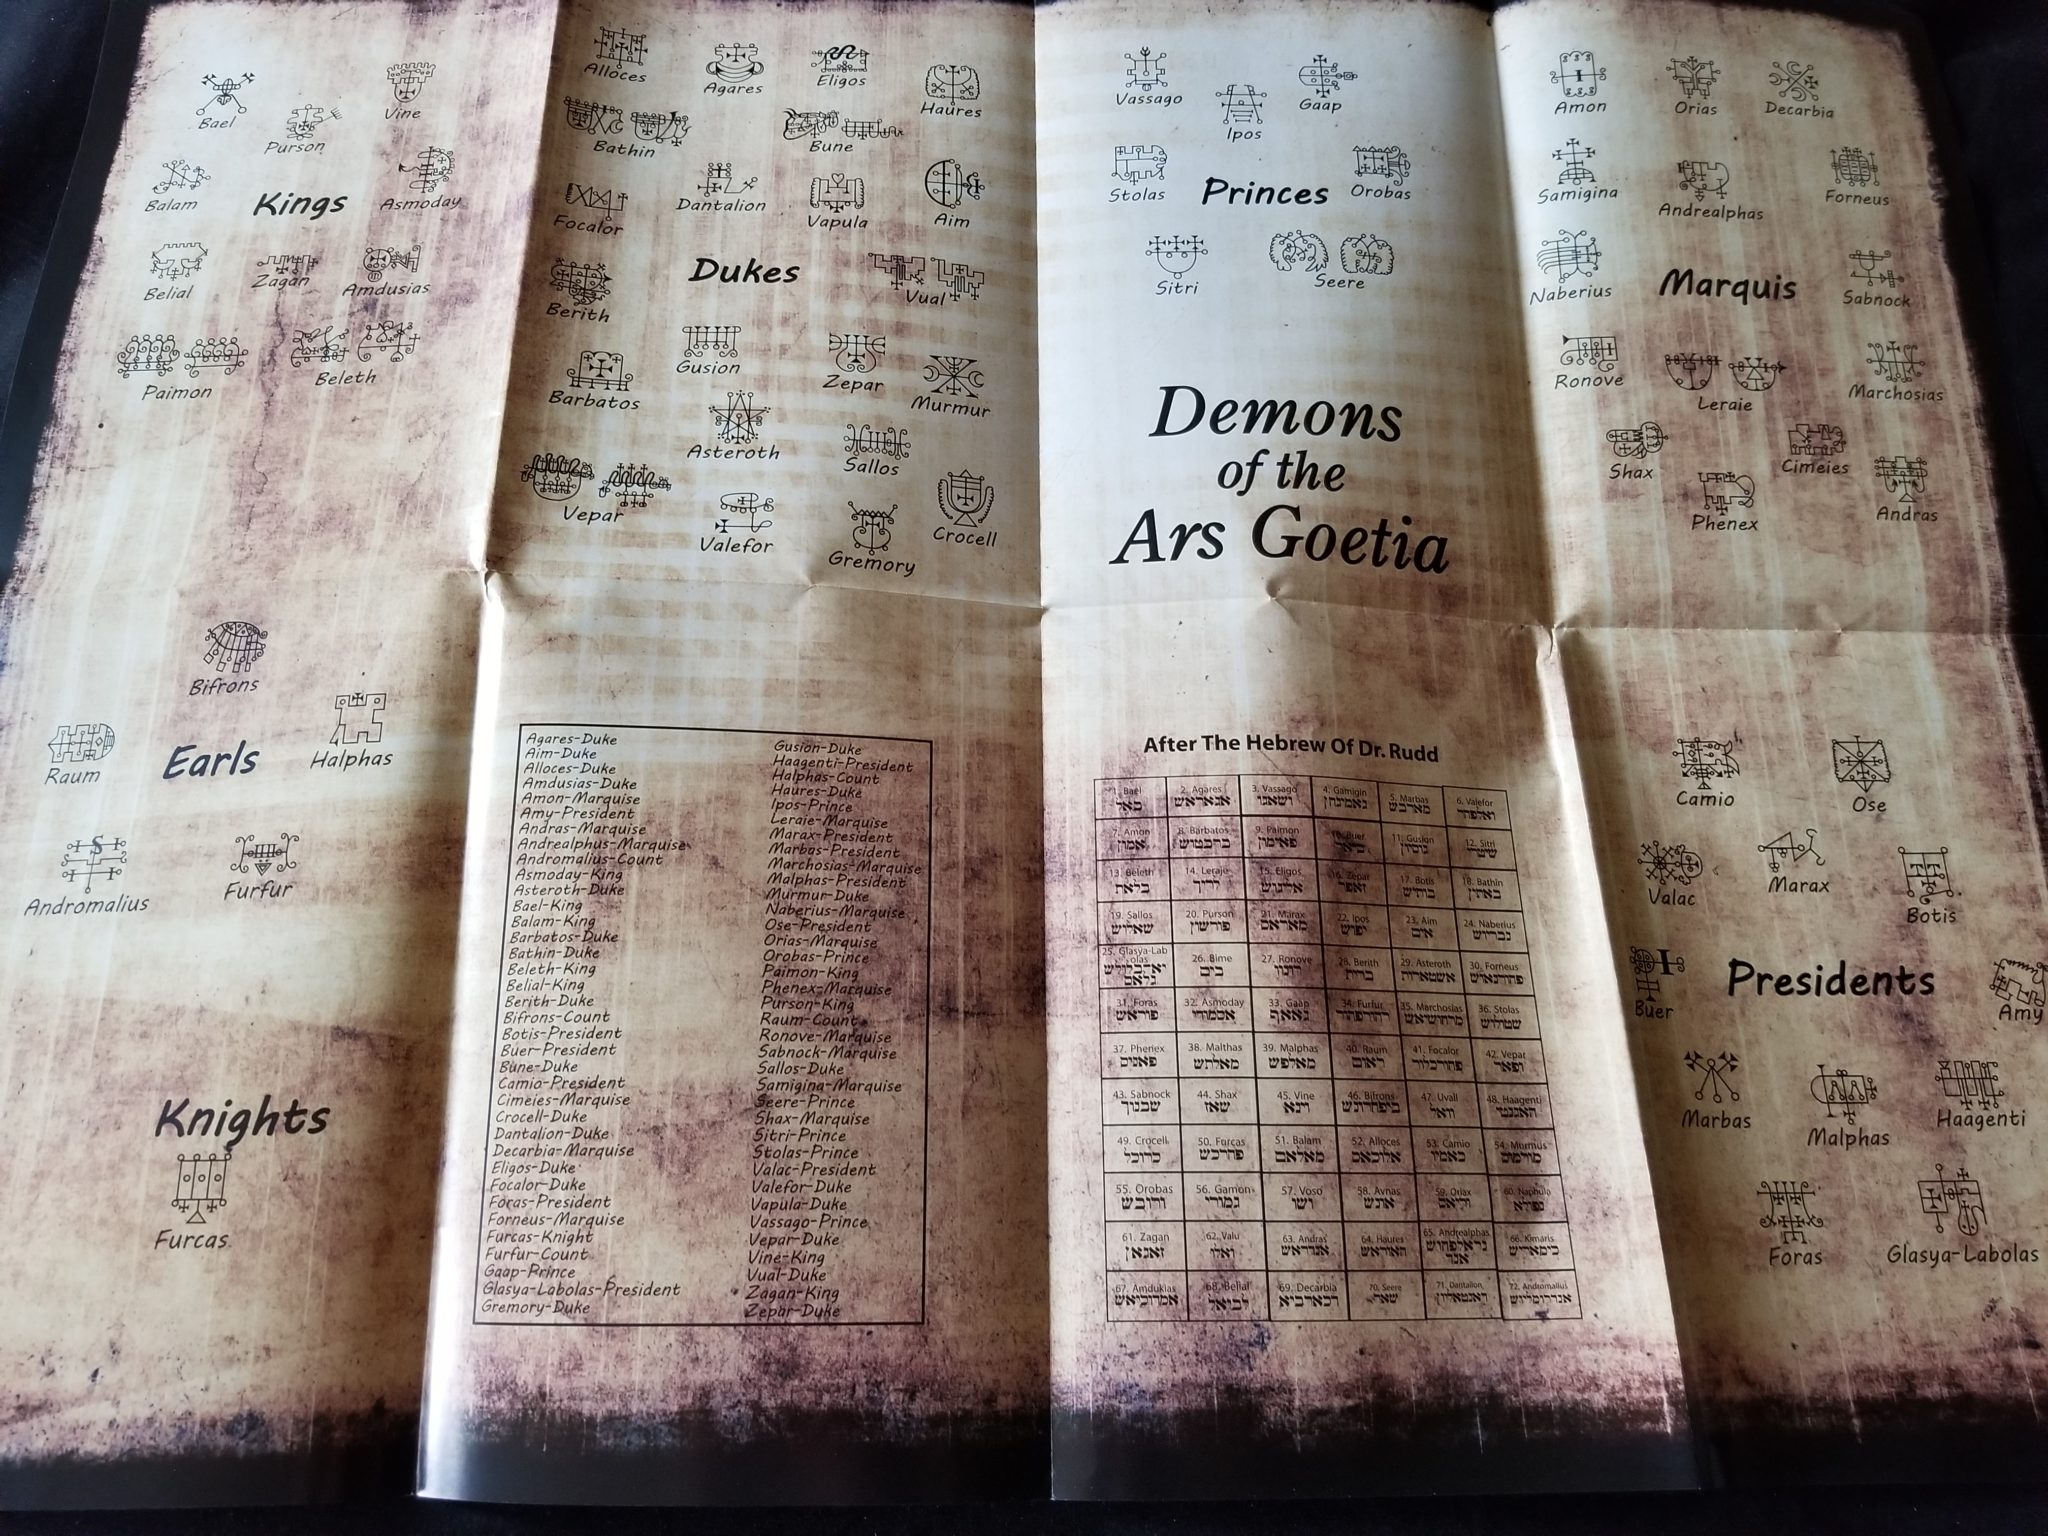 Bael
Purson
Vine
Balam
Kings
Asmoday
Belial
Zagan
Amdusias
Paimon
Beleth
Alloces
Agares
Eligos
Haures
Bathin
Bune
Focalor
Dantalion
Vapula
Aim
Dukes
Berith
Vual
Barbatos
Gusion
Zepar
Murmur
Asteroth
Sallos
Vepar
Valefor
Gremory
Crocell
Vassago
Ipos
Gaap
Stolas
Princes
Orobas
Sitri
Seere
Demons
of the
Ars Goetia
Amon
Orias
Decarbia
Samigina
Andrealphas
Forneus
Naberius
Marquis
Sabnock
Ronove
Leraie
Marchosias
Shax
Cimeies
Phenex
Andras
Bifrons
Raum
Earls
Halphas
Andromalius
Furfur
Knights
Furcas
Agares-Duke
Aim-Duke
Alloces-Duke
Amdusias-Duke
Amon-Marquise
Amy-President
Andras-Marquise
Andrealphus-Marquise
Andromalius-Count
Asmoday-King
Asteroth-Duke
Bael-King
Balam-King
Barbatos-Duke
Bathin-Duke
Beleth-King
Belial-King
Berith-Duke
Bifrons-Count
Botis-President
Buer-President
Bune-Duke
Camio-President
Cimeies-Marquise
Crocell-Duke
Dantalion-Duke
Decarbia-Marquise
Eligos-Duke
Focalor-Duke
Foras-President
Forneus-Marquise
Furcas-Knight
Furfur-Count
Gaap-Prince
Glasya-Labolas-President
Gremory-Duke
Gusion-Duke
Haagenti-President
Halphas-Count
Haures-Duke
Ipos-Prince
Leraie-Marquise
Marax-President
Marbas-President
Marchosias-Marquise
Malphas-President
Murmur-Duke
Naberius-Marquise
Ose-President
Orias-Marquise
Orobas-Prince
Paimon-King
Phenex-Marquise
Purson-King
Raum-Count
Ronove-Marquise
Sabnock-Marquise
Sallos-Duke
Samigina-Marquise
Seere-Prince
Shax-Marquise
Sitri-Prince
Stolas-Prince
Valac-President
Valefor-Duke
Vapula-Duke
Vassago-Prince
Vepar-Duke
Vine-King
Vual-Duke
Zagan-King
Zepar-Duke
After The Hebrew Of Dr. Rudd
1. Bael 2. Agares 3. Vassago 4. Gamigin 5. Marbas 6. Valefor
באל אגאראש ושאגו גאמיגין מארבש ואלפהר
7. Amon 8. Barbatos 9. Paimon 10. Buer 11. Gusion 12. Sitri
אמון ברבטוש פאימון בואר גוסיון שיטרי
13. Beleth 14. Leraje 15. Eligos 16. Zepar 17. Botis 18. Bathin
בלאת אליגוש זאפר בוטיש באתין
19. Sallos 20. Purson 21. Marax 22. Ipos 23. Aim 24. Naberius
שאלוש פורשון מאראס יפוש אים נבריוש
25. Glasya-Lab
olas 26. Bime 27. Ronove 28. Berith 29. Asteroth 30. Forneus
בים ברית אשטארות
31. Foras 32. Asmoday 33. Gaap 34. Furfur 35. Marchosias 36. Stolas
פוראש אסמודי גאאף מרחושיאש שטולוש
37. Phenex 38. Malthas 39. Malphas 40. Raum 41. Focalor 42. Vepar
פאניס מאלתש מאלפש ראום ופאר
43. Sabnock 44. Shax 45. Vine 46. Bifrons 47. Uvall 48. Haagenti
שבנוך שאז וינא וואל האגנטי
49. Crocell 50. Furcas 51. Balam 52. Alloces 53. Camio 54. Murmus
כרוכל פהרכש מאלאם אלוכאס כאמיו מורמוס
55. Orobas 56. Gamori 57. Voso 58. Avnas 59. Oriax 60. Naphula
ורובש גמורי ושו אונש נפולא
61. Zagan 62. Valu 63. Andras 64. Haures 65. Andrealphas 66. Kimaris
זאגאן ואלו אנדראש האוראש כימאריש
67. Amdukias 68. Belial 69. Decarbia 70. Seere 71. Dantalion 72. Andromalius
אמדוכיאש דכארביא שאר דאנטאליון אנדרומליוש
Camio
Ose
Valac
Marax
Botis
Buer
Presidents
Amy
Marbas
Malphas
Haagenti
Foras
Glasya-Labolas